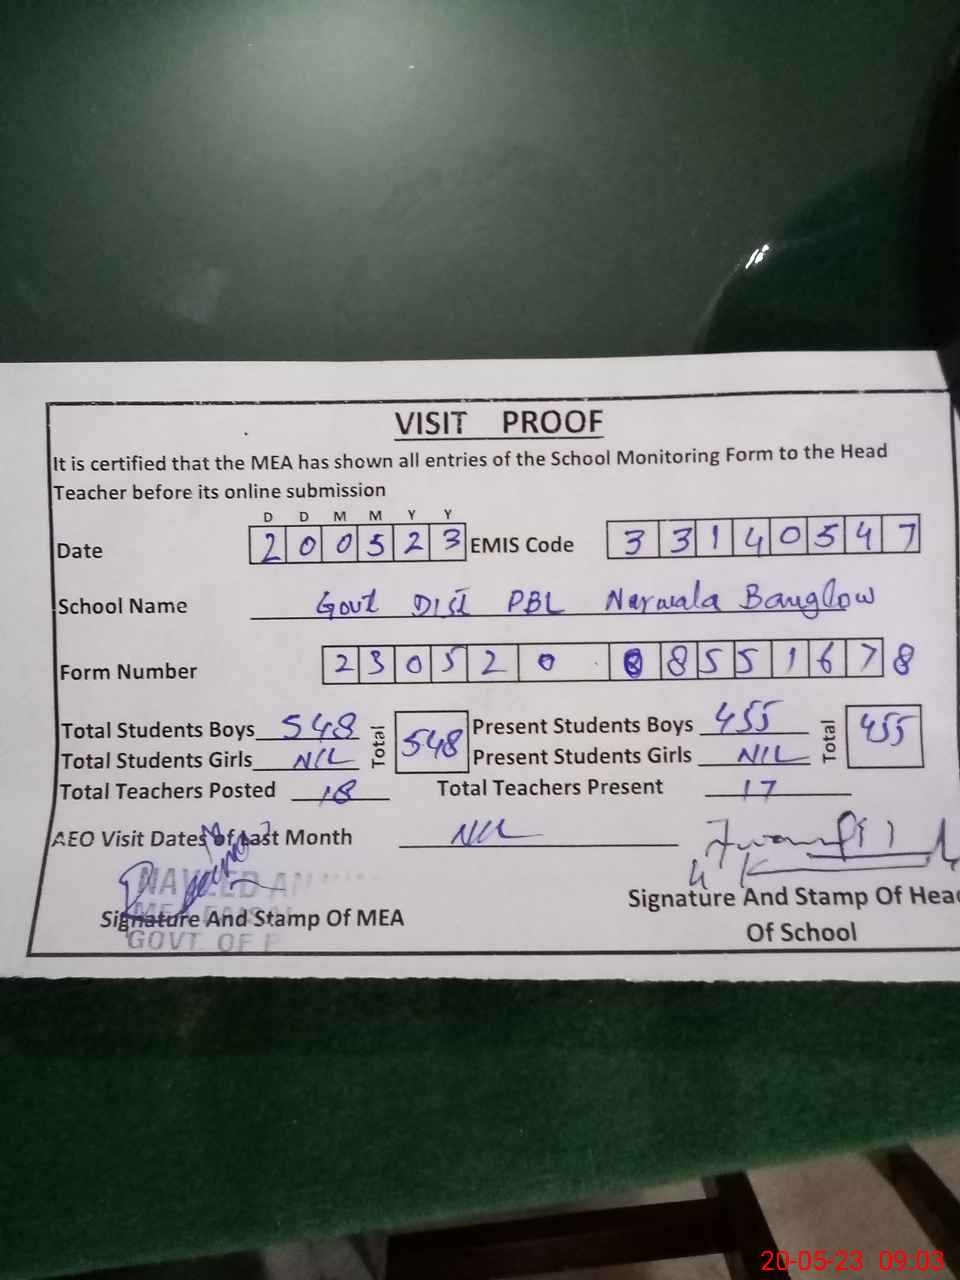 VISIT PROOF
It is certified that the MEA has shown all entries of the School Monitoring Form to the Head
Teacher before its online submission
D D M M Y Y
Date 2 0 0 5 2 3 EMIS Code 3 3 1 4 0 5 4 7
School Name Govt Dist PBL Narwala Banglow
Form Number 2 3 0 5 2 0 8 8 5 5 1 6 7 8
Total Students Boys 548 Total 548 Present Students Boys 455 Total 455
Total Students Girls NIL Present Students Girls NIL
Total Teachers Posted 18 Total Teachers Present 17
AEO Visit Dates of Last Month Nil
NAVEED
Signature And Stamp Of MEA Signature And Stamp Of Head
GOVT. OF Of School
20-05-23 09:03